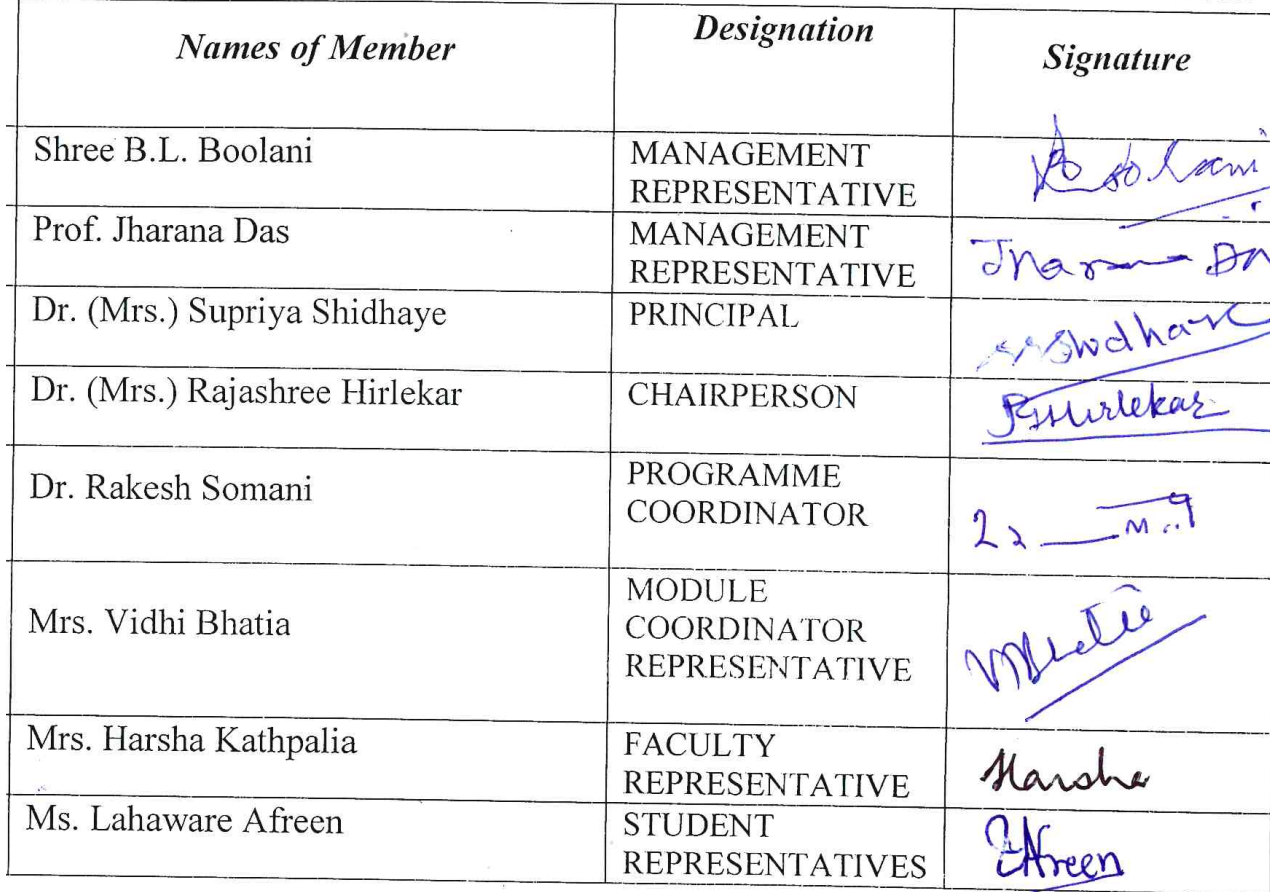 Names of Member
Designation
Signature
Shree B.L. Boolani
MANAGEMENT
REPRESENTATIVE
Prof. Jharana Das
MANAGEMENT
REPRESENTATIVE
Jharana Das
Dr. (Mrs.) Supriya Shidhaye
PRINCIPAL
Dr. (Mrs.) Rajashree Hirlekar
CHAIRPERSON
Hirlekar
Dr. Rakesh Somani
PROGRAMME
COORDINATOR
Mrs. Vidhi Bhatia
MODULE
COORDINATOR
REPRESENTATIVE
Mrs. Harsha Kathpalia
FACULTY
REPRESENTATIVE
Harsha
Ms. Lahaware Afreen
STUDENT
REPRESENTATIVES
Afreen